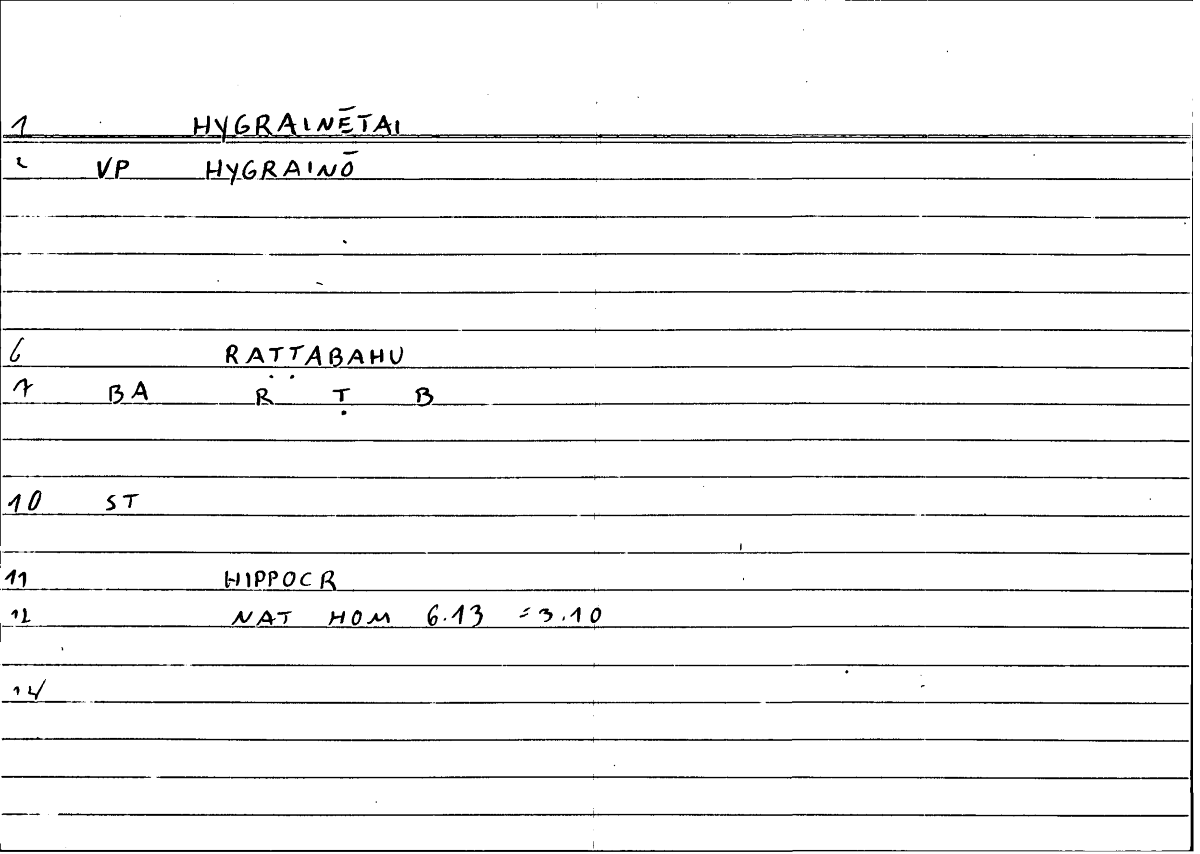 1 HYGRAINĒTAI
2 VP HYGRAINŌ
6 RAṬṬABAHU
7 BA R Ṭ B
10 ST
11 HIPPOCR
12 NAT HOM 6.13 =3.10
14